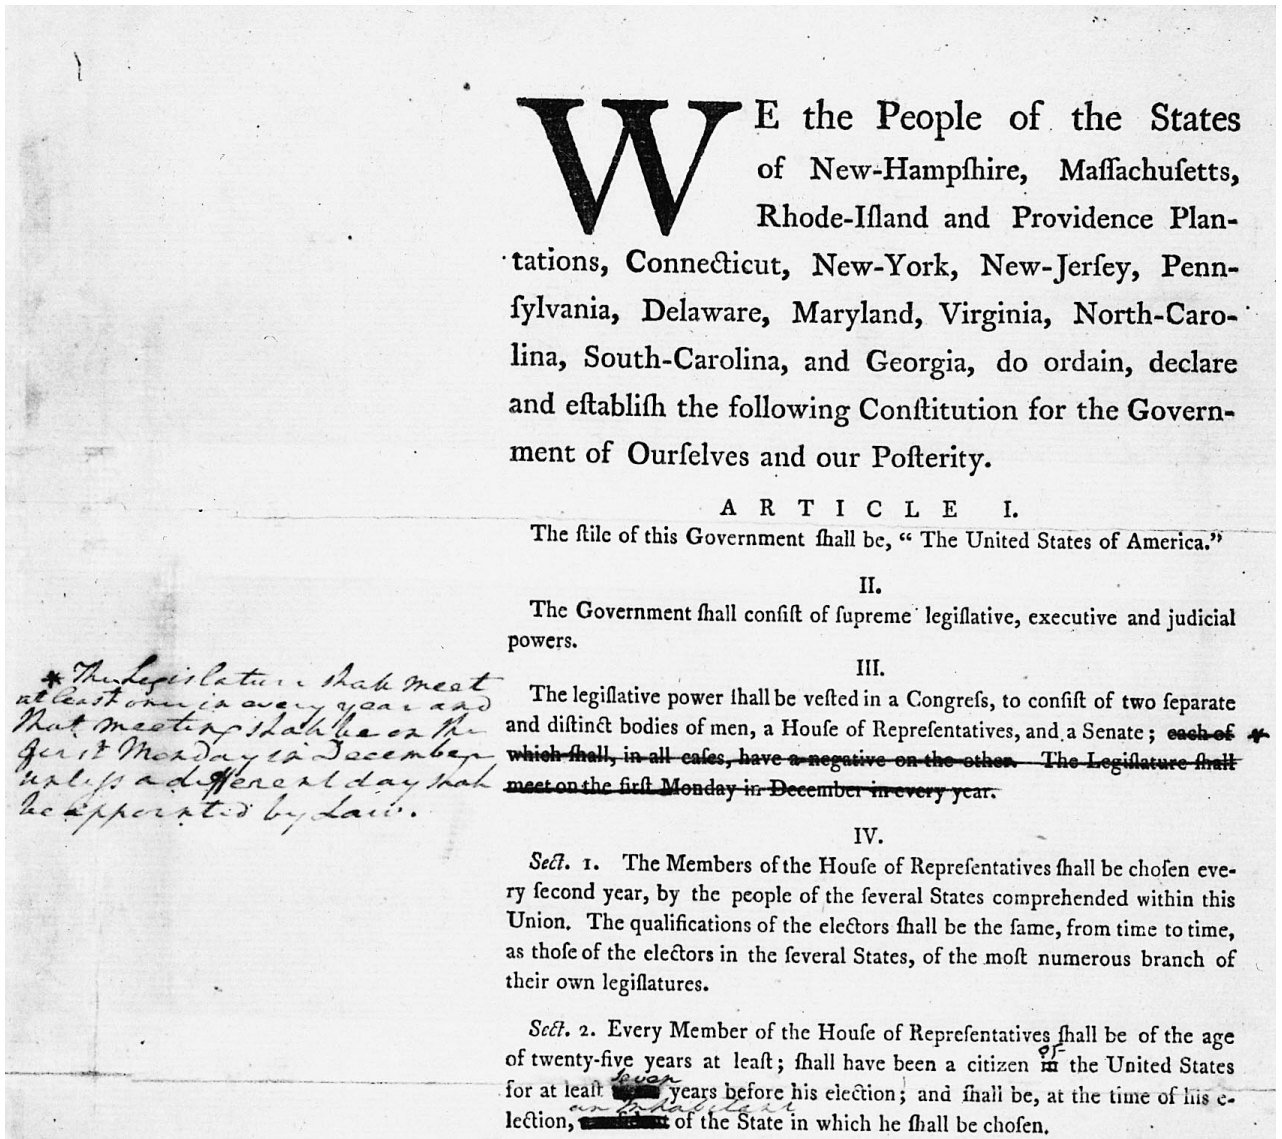 WE the People of the States
of New-Hampſhire, Maſſachuſetts,
Rhode-Iſland and Providence Plan-
tations, Connecticut, New-York, New-Jerſey, Penn-
ſylvania, Delaware, Maryland, Virginia, North-Caro-
lina, South-Carolina, and Georgia, do ordain, declare
and eſtabliſh the following Conſtitution for the Govern-
ment of Ourſelves and our Poſterity.
ARTICLE I.
The ſtile of this Government ſhall be, “ The United States of America.”
II.
The Government ſhall conſiſt of ſupreme legiſlative, executive and judicial
powers.
III.
The legiſlative power ſhall be veſted in a Congreſs, to conſiſt of two ſeparate
and diſtinct bodies of men, a Houſe of Repreſentatives, and a Senate ; each of *
which ſhall, in all caſes, have a negative on the other. The Legiſlature ſhall
meet on the firſt Monday in December in every year.
* The Legislature shall meet
at least once in every year and
that meeting shall be on the
first Monday in December
unless a different day shall
be appointed by Law.
IV.
Sect. 1. The Members of the Houſe of Repreſentatives ſhall be choſen eve-
ry ſecond year, by the people of the ſeveral States comprehended within this
Union. The qualifications of the electors ſhall be the ſame, from time to time,
as thoſe of the electors in the ſeveral States, of the moſt numerous branch of
their own legiſlatures.
Sect. 2. Every Member of the Houſe of Repreſentatives ſhall be of the age
of
of twenty-five years at leaſt ; ſhall have been a citizen in the United States
seven
for at leaſt years before his election ; and ſhall be, at the time of his e-
an inhabitant
lection, of the State in which he ſhall be choſen.